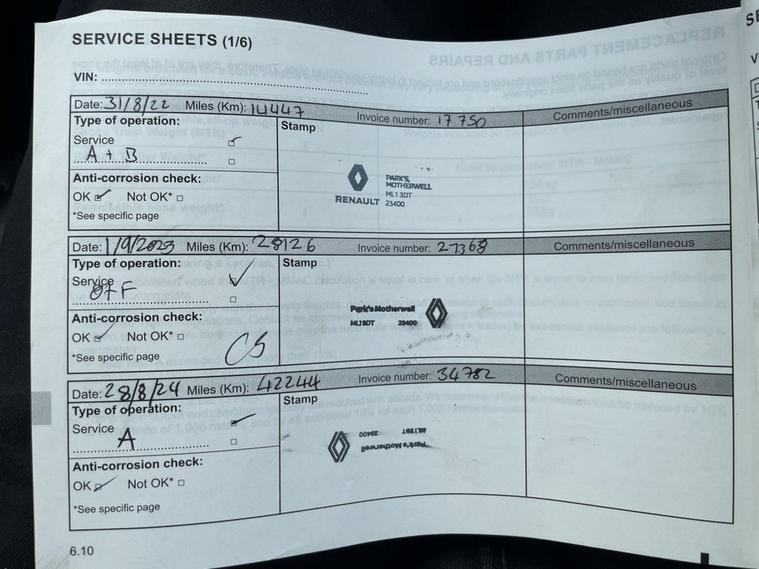 SERVICE SHEETS (1/6)
VIN:
Date: 31/8/22 Miles (Km): 14447 Invoice number: 17750 Comments/miscellaneous
Type of operation:
Stamp
Service
A + B
Anti-corrosion check:
OK Not OK*
*See specific page
PARK'S
MOTHERWELL
ML1 3DT
RENAULT 23400
Date: 1/9/2023 Miles (Km): 28126 Invoice number: 27368 Comments/miscellaneous
Type of operation:
Stamp
Service
Anti-corrosion check:
OK Not OK*
*See specific page
CS
Park's Motherwell
ML1 3DT 23400
Date: 28/8/24 Miles (Km): 42244 Invoice number: 34782 Comments/miscellaneous
Type of operation:
Stamp
Service
A
Anti-corrosion check:
OK Not OK*
*See specific page
Park's Motherwell
ML1 3DT 23400
6.10
REPLACEMENT PARTS AND REPAIRS